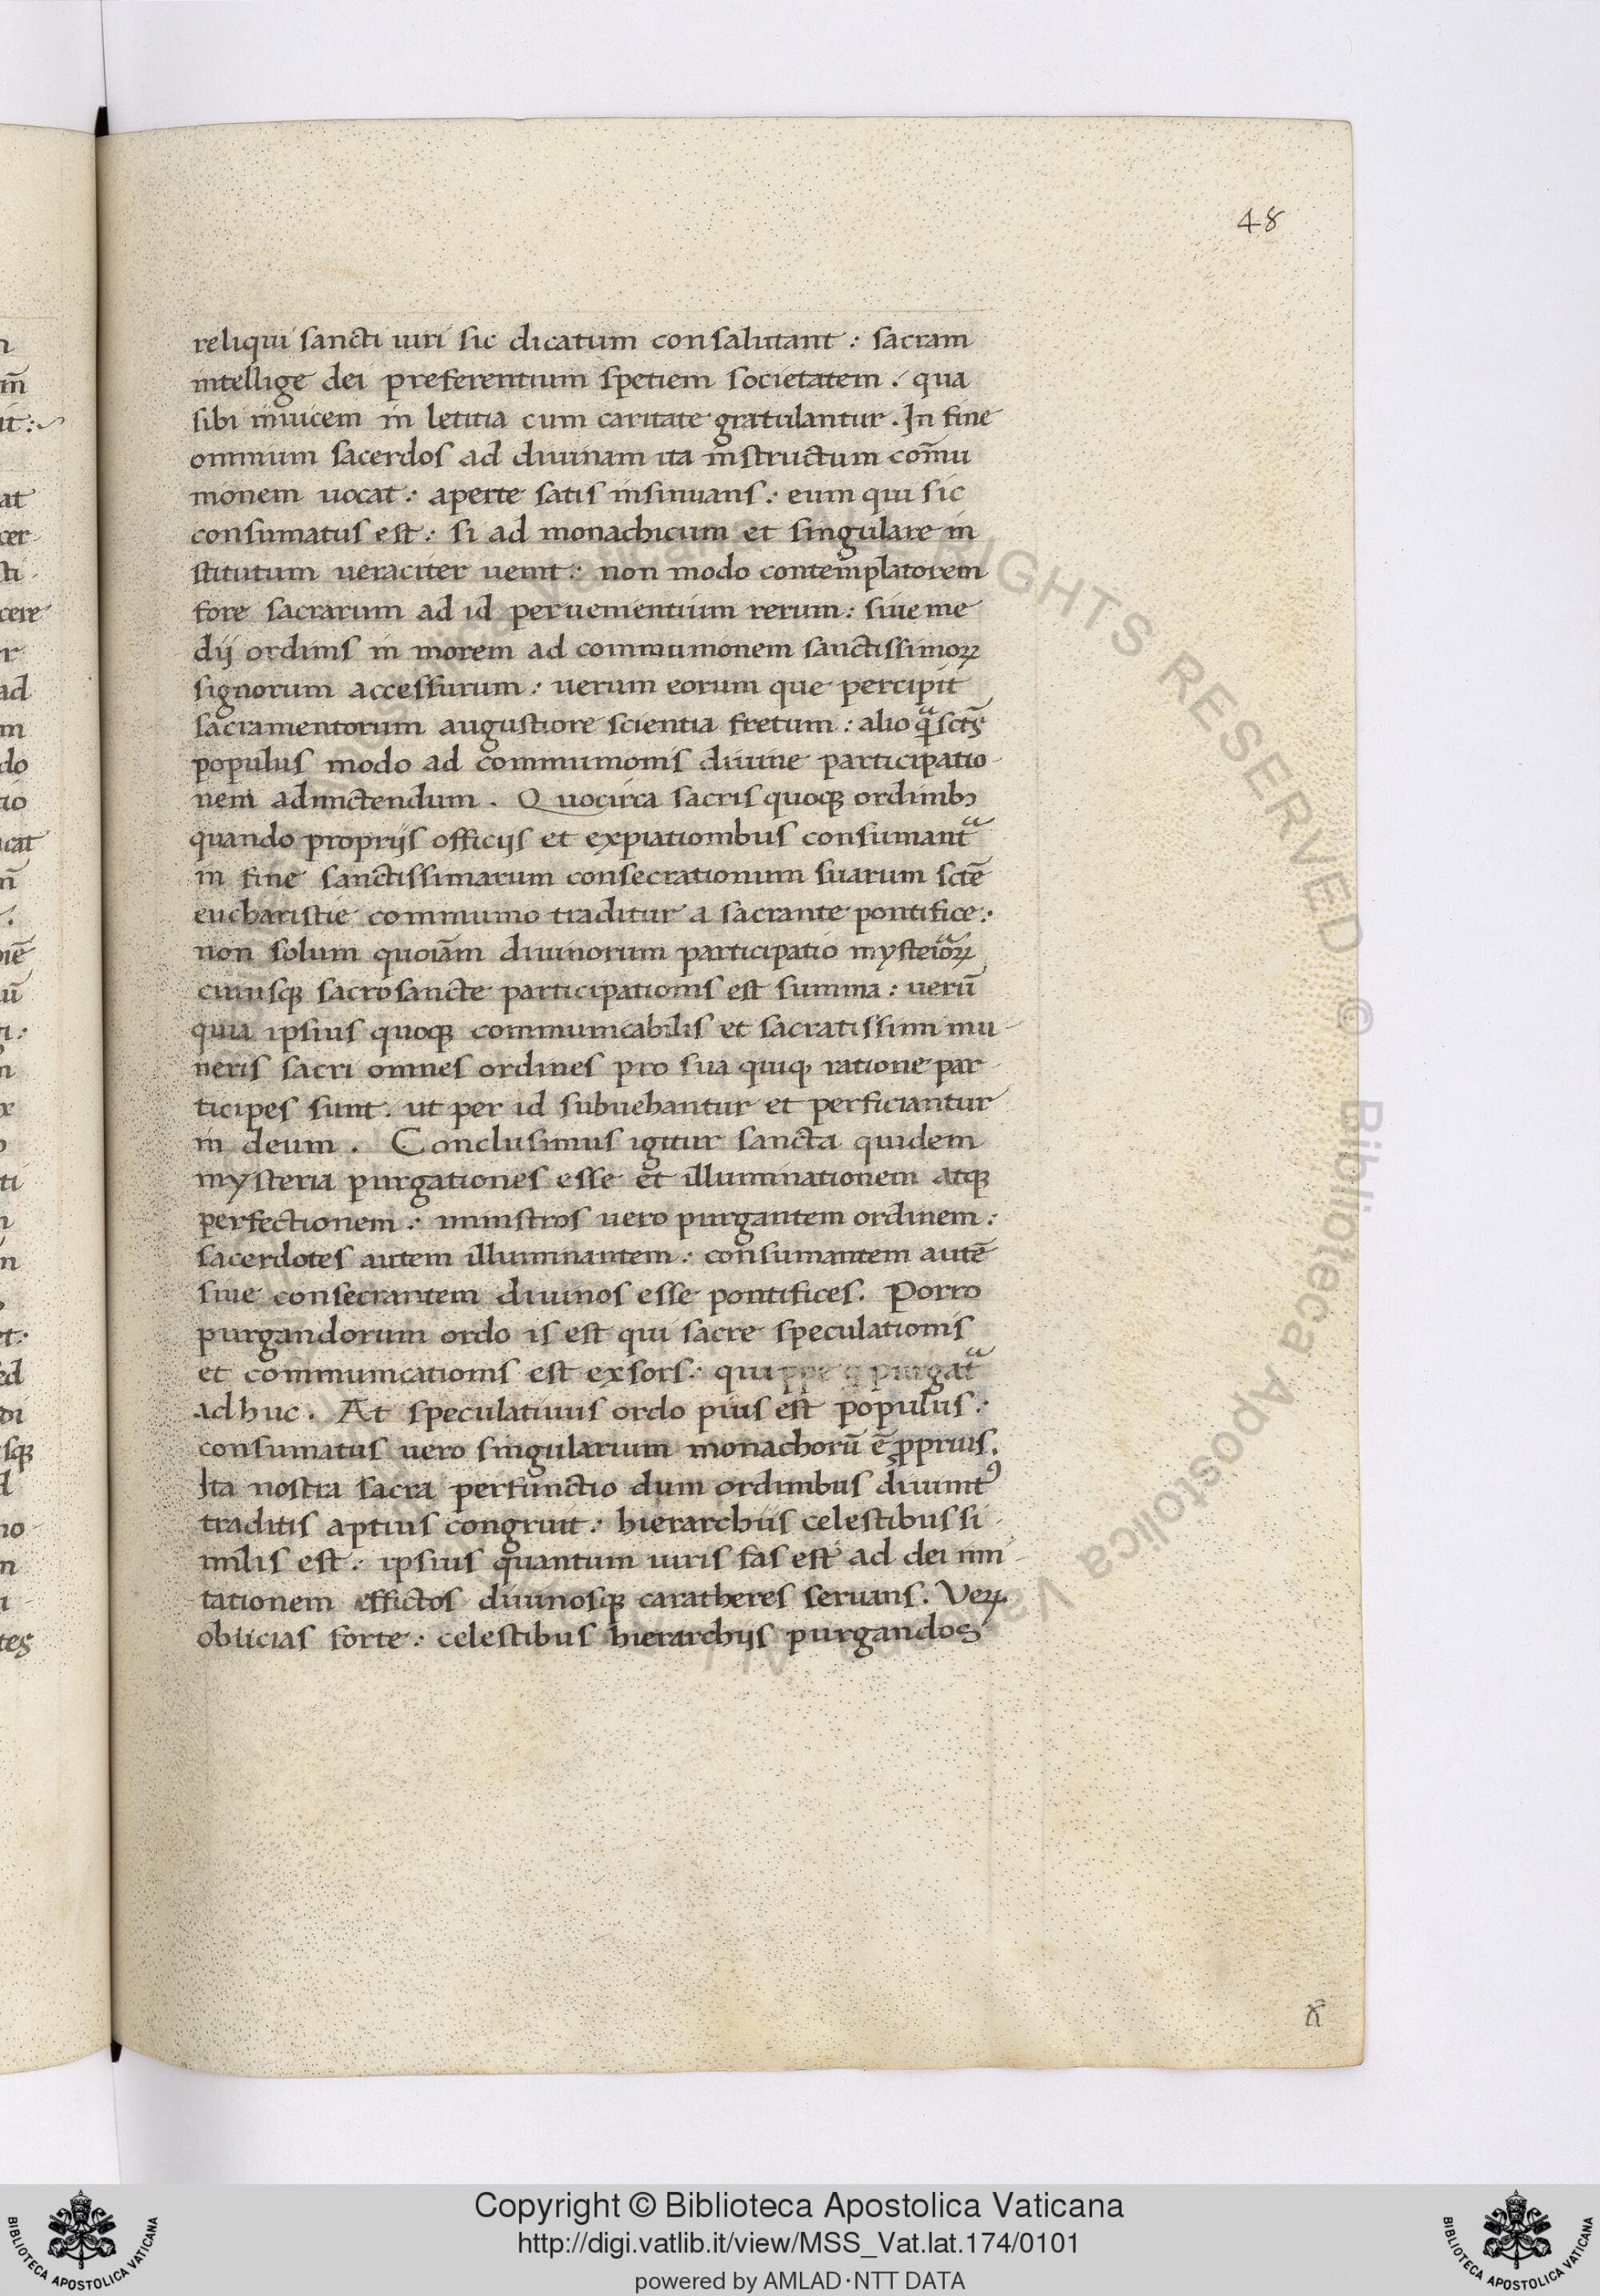 48
reliqui sancti uiri sic dicatum consalutant : sacram
intellige dei preferentium spetiem societatem . qua
sibi inuicem in letitia cum caritate gratulantur . In fine
omnium sacerdos ad diuinam ita instructum com̄u
nionem uocat : aperte satis insinuans : eum qui sic
consumatus est : si ad monachicum et singulare in
stitutum ueraciter uenit : non modo contemplatorem
fore sacrarum ad id peruenientium rerum : siue me
dij ordinis in morem ad communionem sanctissimoꝝ
signorum accessurum : uerum eorum que percipit
sacramentorum augustiore scientia fretum : alio
populus modo ad communionis diuine participatio
nem admictendum . Quocirca sacris quoqꝫ ordinibꝫ
quando proprijs officijs et expiationibus consumantᷓ
in fine sanctissimarum consecrationum suarum sctē
eucharistie communio traditur a sacrante pontifice :
non solum quoiām diuinorum participatio
cuiusqꝫ sacrosancte participationis est summa : uerū
quia ipsius quoqꝫ communicabilis et sacratissimi mu-
neris sacri omnes ordines pro sua quiqꝫ ratione par-
ticipes sunt . ut per id subuehantur et perficiantur
in deum . Conclusimus igitur sancta quidem
mysteria purgationes esse et illuminationem atqꝫ
perfectionem : ministros uero purgantem ordinem :
sacerdotes autem illuminantem : consumantem autē
siue consecrantem diuinos esse pontifices . Porro
purgandorum ordo is est qui sacre speculationis
et communicationis est exsors : quippe q purgatᷓ
adhuc . At speculatiuus ordo pius est populus :
consumatus uero singularium monachorū ē ꝓprius .
Ita nostra sacra perfunctio dum ordinibus diuinitꝰ
traditis aptius congruit : hierarchiis celestibus si-
milis est : ipsius quantum uiris fas est ad dei imi-
tationem effictos diuinosqꝫ caratheres seruans . Veꝝ
obiicias forte : celestibus hierarchijs purgandos
Copyright © Biblioteca Apostolica Vaticana
http://digi.vatlib.it/view/MSS_Vat.lat.174/0101
powered by AMLAD·NTT DATA
BIBLIOTECA APOSTOLICA VATICANA
BIBLIOTECA APOSTOLICA VATICANA